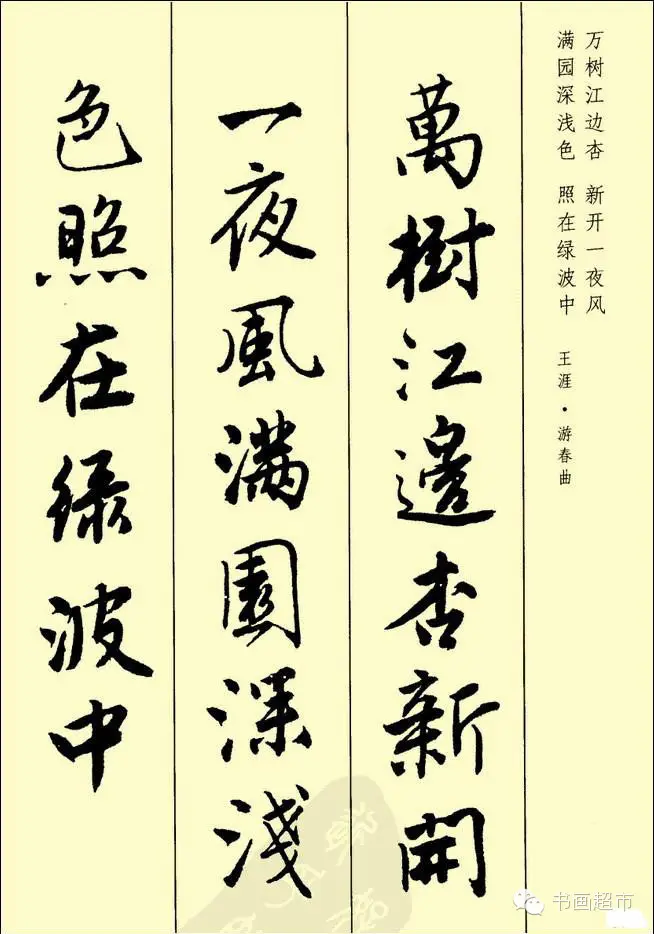 万树江边杏 新开一夜风
满园深浅色 照在绿波中
王涯·游春曲
萬樹江邊杏新開
一夜風滿園深淺
色照在绿波中
书画超市